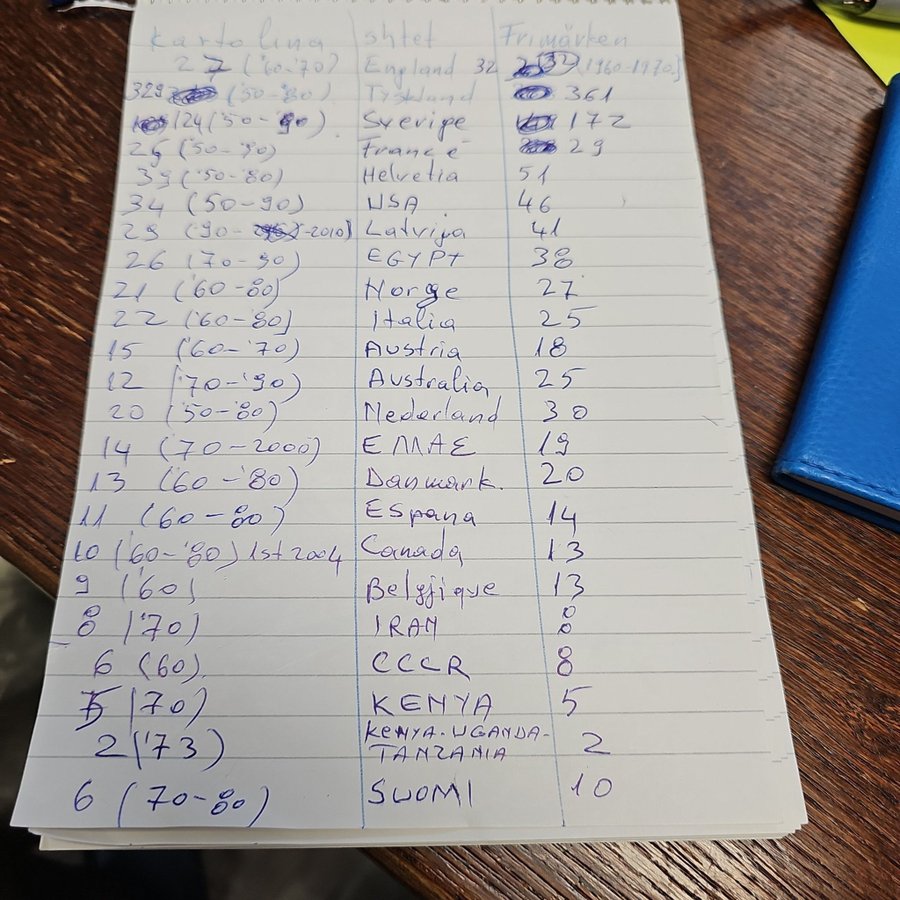 Kartolina shtet Frimärken
27 ('60-'70) England 32 32 (1960-1970)
329 (50-'80) Tyskland 361
124 ('50-'90) Sverige 172
26 ('50-'90) France 29
39 ('50-'80) Helvetia 51
34 (50-90) USA 46
29 (90- -2010) Latvija 41
26 (70-90) EGYPT 38
21 ('60-80) Norge 27
22 ('60-'80) Italia 25
15 ('60-'70) Austria 18
12 ('70-'90) Australia 25
20 ('50-'80) Nederland 30
14 (70-2000) ΕΛΛΑΣ 19
13 (60-'80) Danmark. 20
11 (60-80) Espana 14
10 ('60-'80) 1st 2004 Canada 13
9 ('60) Belgjique 13
8 ('70) IRAN 8
6 (60). CCCR 8
5 ('70) KENYA 5
2 ('73) KENYA-UGANDA-
TANZANIA 2
6 (70-80) SUOMI 10